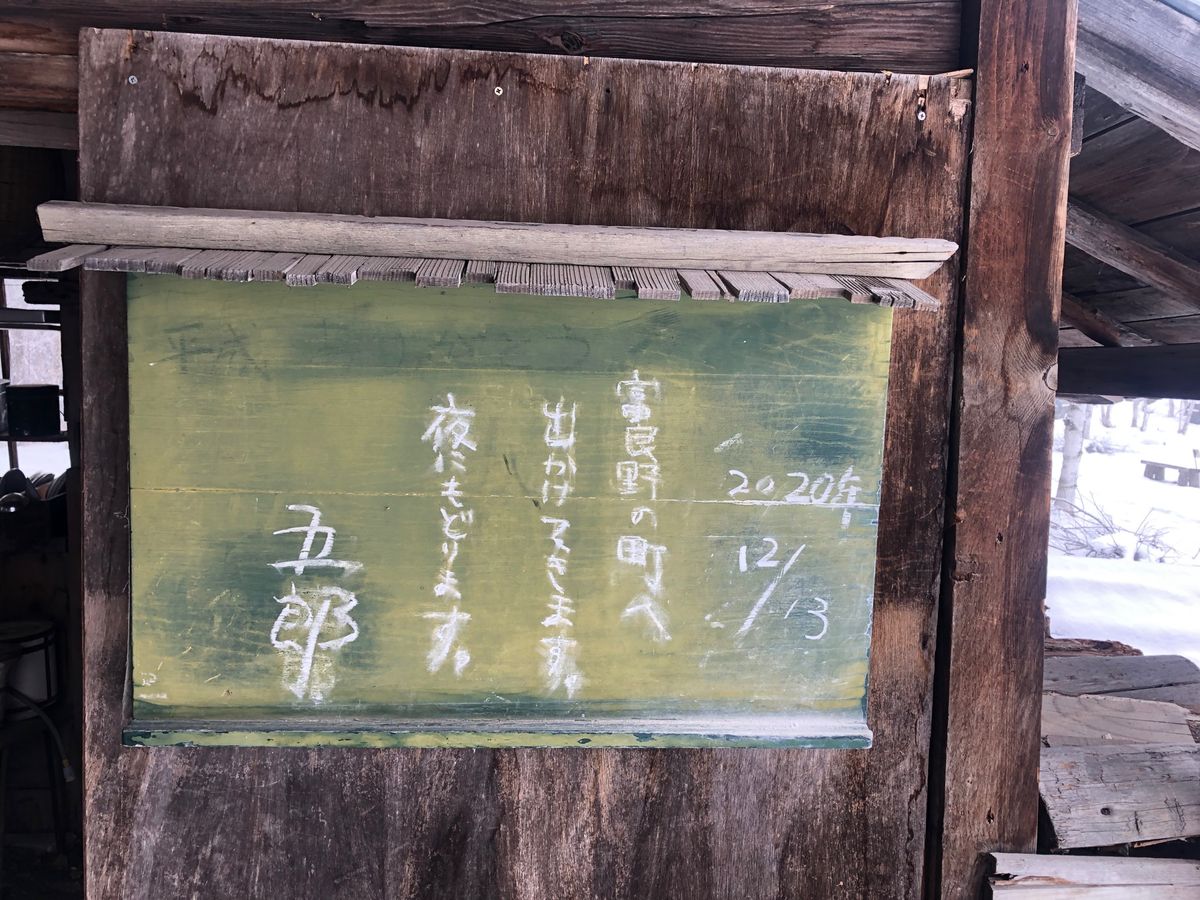 2020年
12/13
富良野の町へ
出かけてきます。
夜にもどります。
五郎